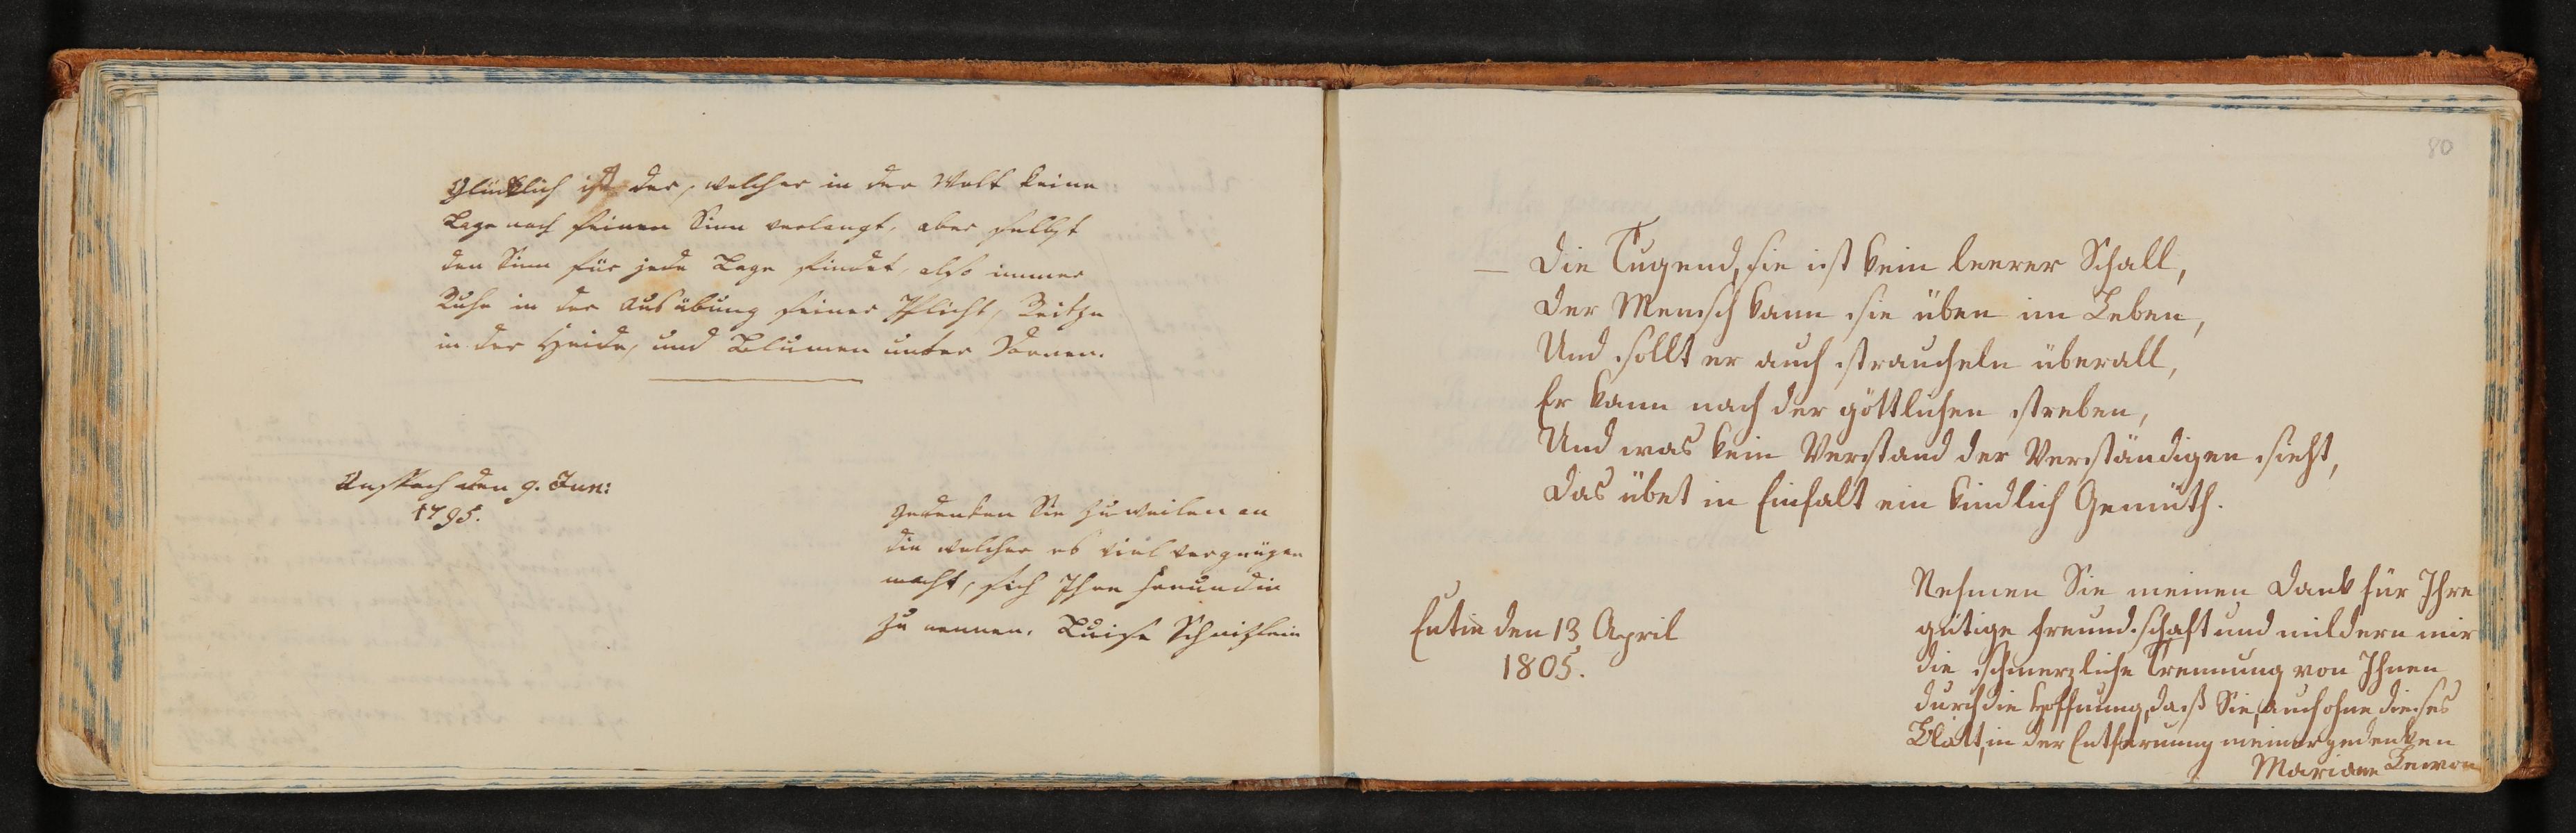 Glücklich ist der, welcher in der Welt keine
Lage nach seinem Sinn verlangt, aber selbst
den Sinn für jede Lage findet, also immer
Ruhe in der Ausübung seiner Pflicht, Reitze
in der Heide, und Blumen unter Dornen.
Anspach den 9. Jun:
1795.
Gedenken Sie zuweilen an
die welcher es viel vergnügen
macht, sich Ihre Freundin
zu nennen. Luise Schnitzlein
80
— Die Tugend, sie ist kein leerer Schall,
Der Mensch kann sie üben im Leben,
Und sollt er auch straucheln überall,
Er kann nach der göttlichen streben,
Und was kein Verstand der Verständigen sieht,
Das übet in Einfalt ein kindlich Gemüth.
Eutin den 13 April
1805.
Nehmen Sie meinen Dank für Ihre
gütige Freundschaft und mildern mir
die schmerzliche Trennung von Ihnen
durch die Hoffnung, daß Sie, auch ohne dieses
Blatt, in der Entfernung meiner gedenken
Mariane